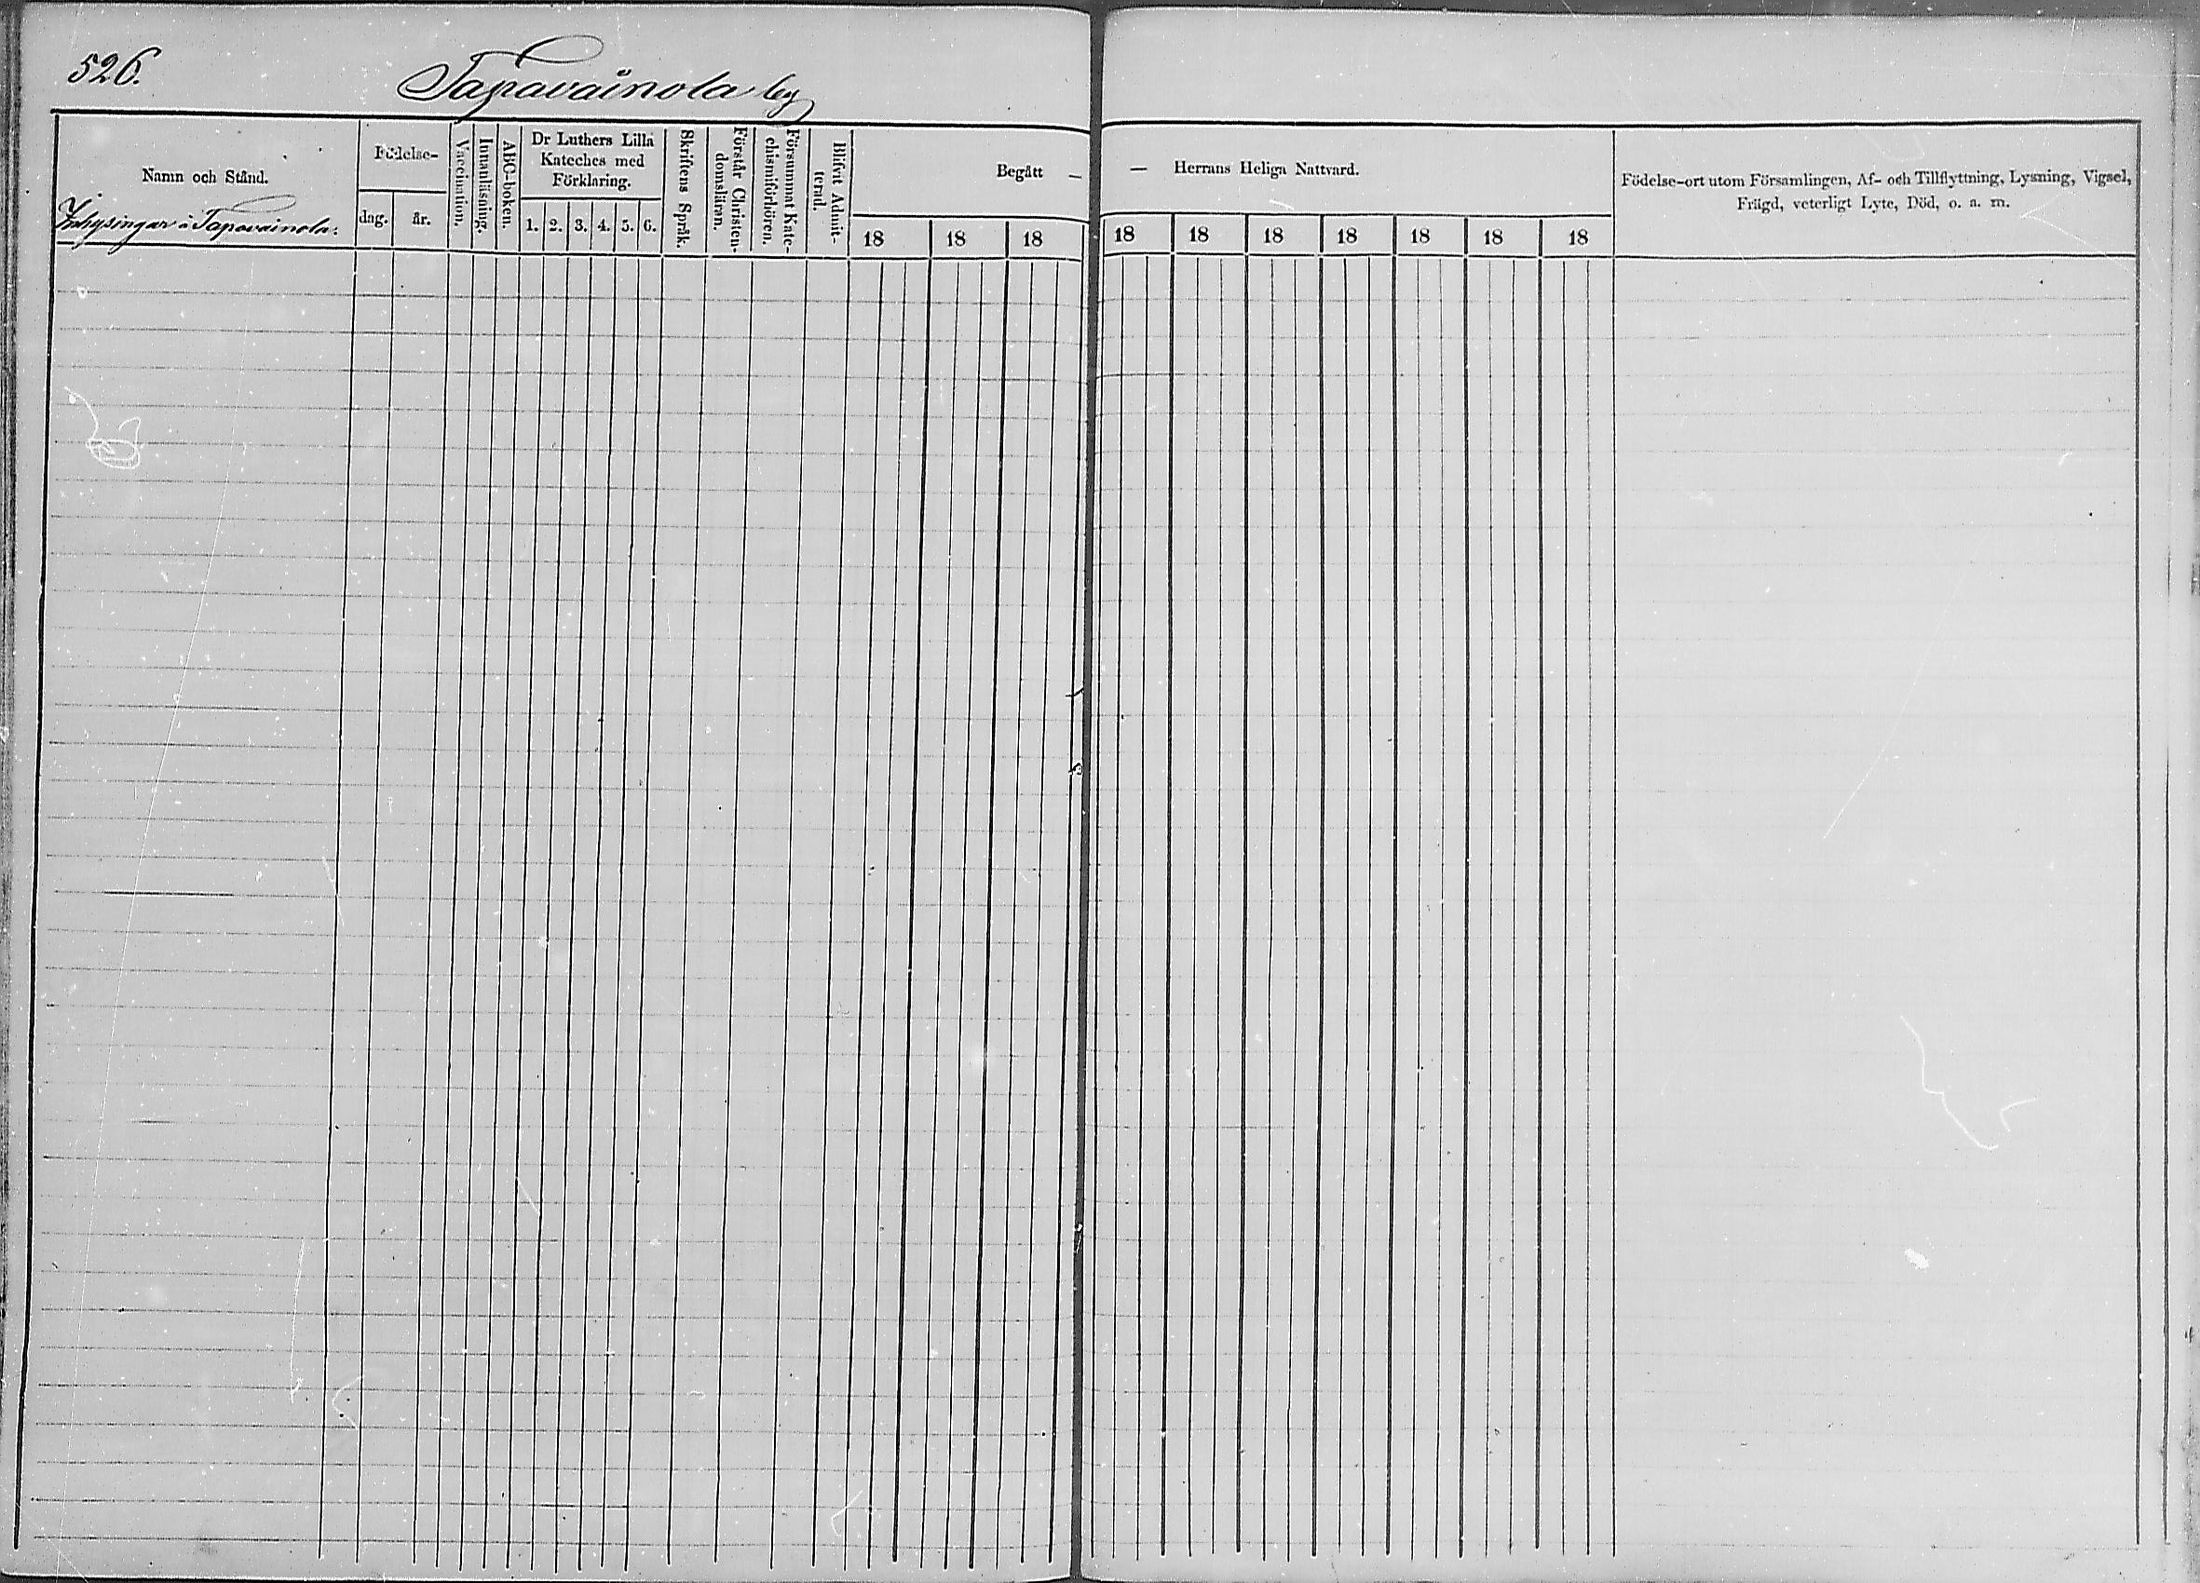 526.
Tapavainola by
Namn och Stånd.
Inhysingar i Tapavainola:
Födelse-
dag.
år.
Vaccination.
Innanläsning.
ABC-boken.
Dr Luthers Lilla
Kateches med
Förklaring.
1. 2. 3. 4. 5. 6.
Skriftens Språk.
Förstår Christen-
domsläran.
Försummat Kate-
chismiförhören.
Blifvit Admit-
terad.
Begått —
18 18 18
— Herrans Heliga Nattvard.
18 18 18 18 18 18 18
Födelse-ort utom Församlingen, Af- och Tillflyttning, Lysning, Vigsel,
Frägd, veterligt Lyte, Död, o. a. m.